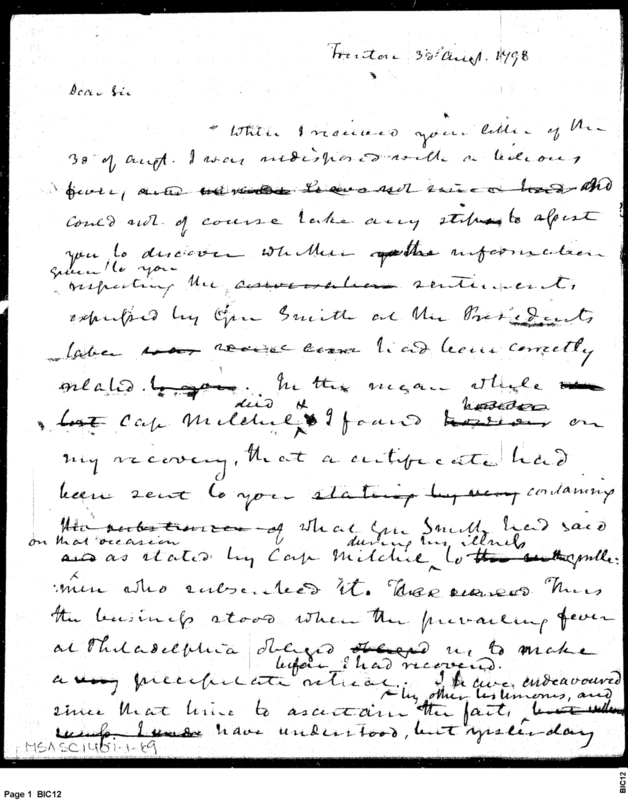 Trenton 30 Augt. 1798
Dear Sir
When I received your letter of the
30 of augt. I was indisposed with a bilious
fever, and
could not of course take any steps to assist
you to discover whether the information
given to you
respecting the conversation sentiments
expressed by Gen Smith at the Presidents
table had been correctly
related to you. In the mean while
lost Cap Mitchel died & I found on
my recovery, that a certificate had
been sent to you stating by very containing
the substance of what Gen Smith had said
on that occasion during his illness
and as stated by Cap Mitchel, to gentle-
men who subscribed it. Thus
the business stood when the prevailing fever
at Philadelphia obliged obliged us to make
before I had recovered.
a very precipitate retreat. I have endeavoured
by other testimonies, and
since that time to ascertain the fact,
have understood, but yesterday
MSA SC 1401-1-89
Page 1 BIC12
BIC12